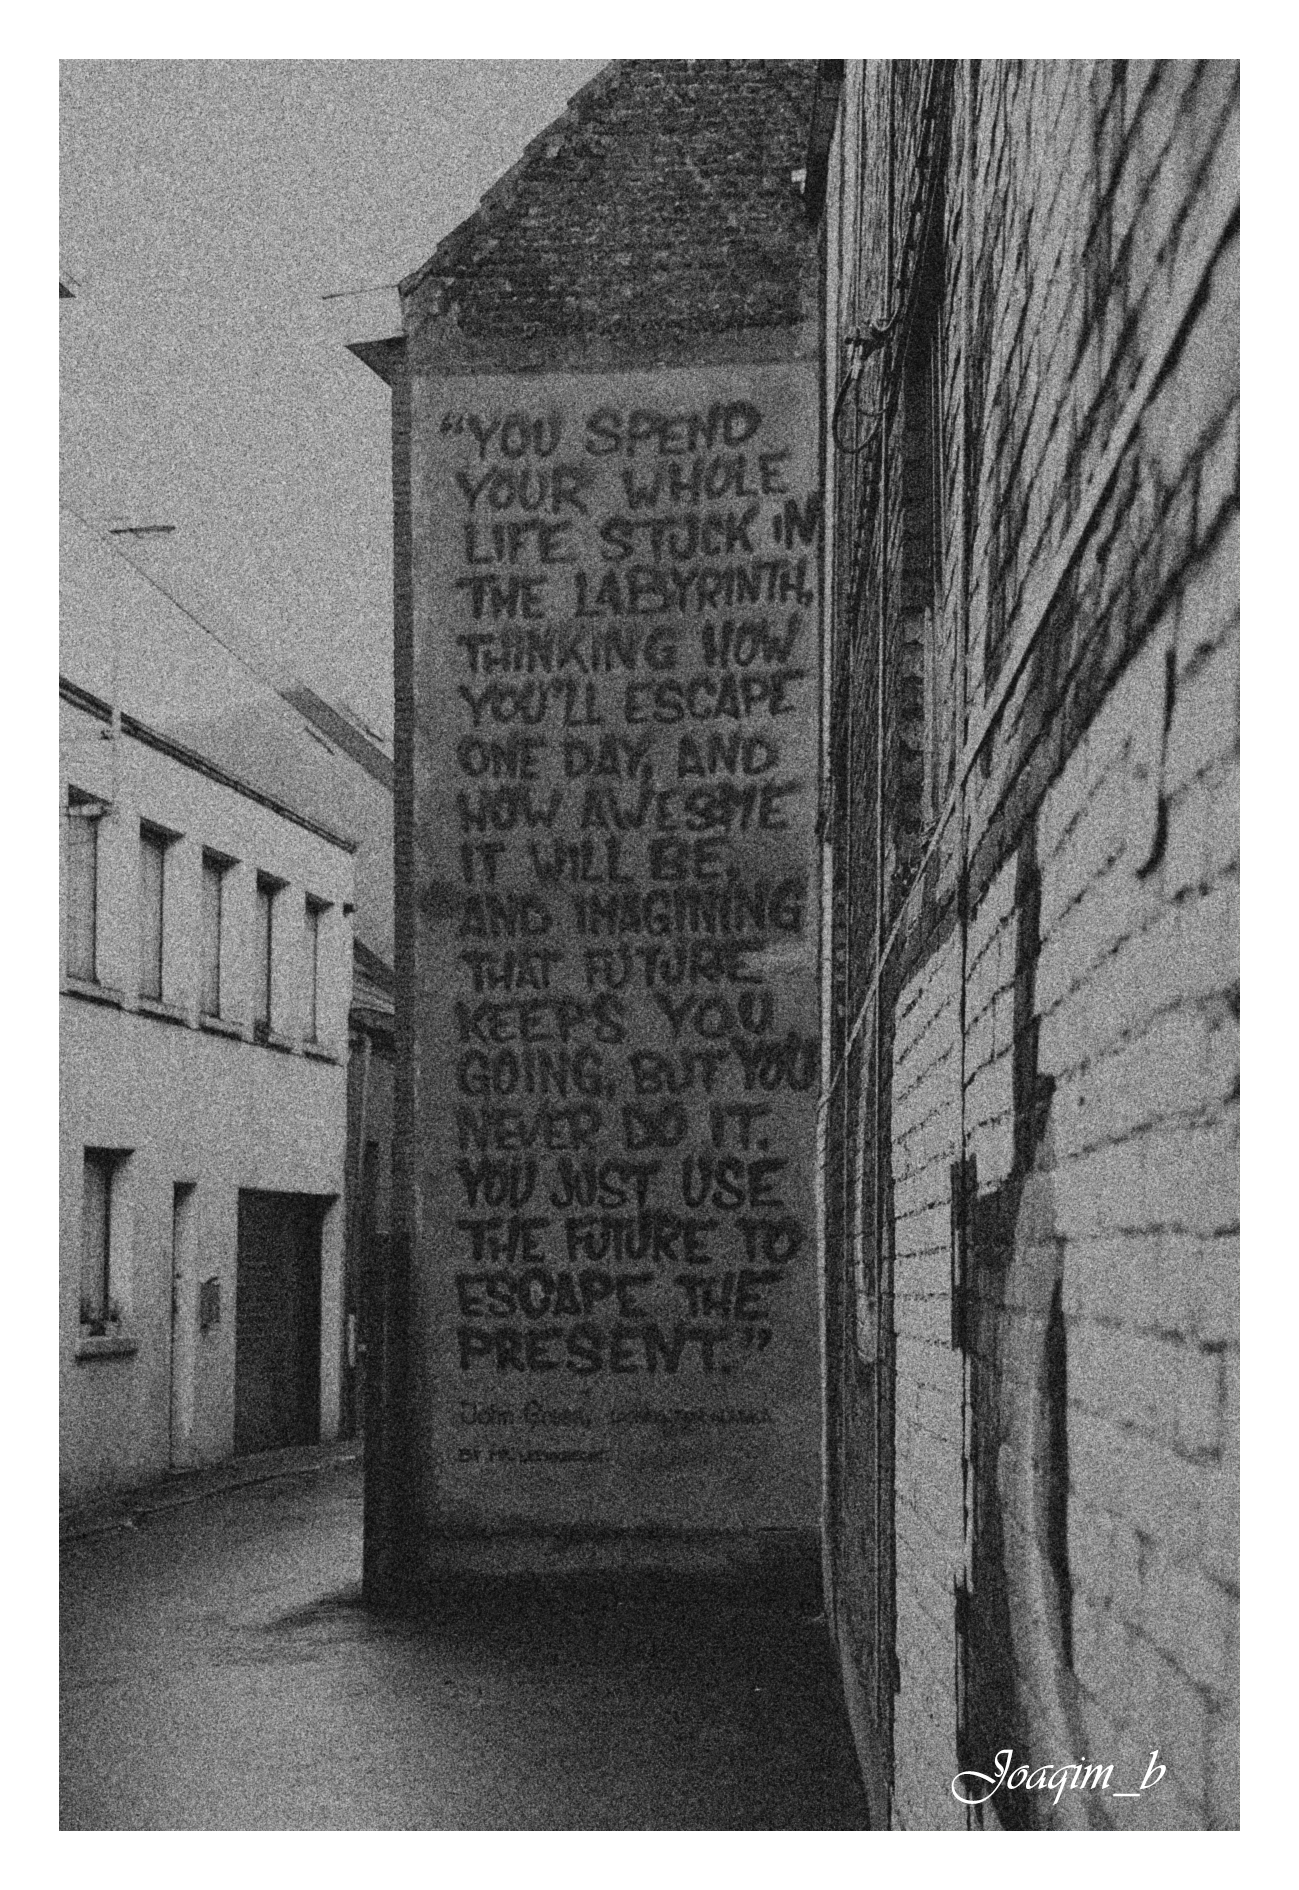 “YOU SPEND
YOUR WHOLE
LIFE STUCK IN
THE LABYRINTH,
THINKING HOW
YOU'LL ESCAPE
ONE DAY, AND
HOW AWESOME
IT WILL BE,
AND IMAGINING
THAT FUTURE
KEEPS YOU
GOING, BUT YOU
NEVER DO IT.
YOU JUST USE
THE FUTURE TO
ESCAPE THE
PRESENT.”
John Green,
BY
Joaqim_b